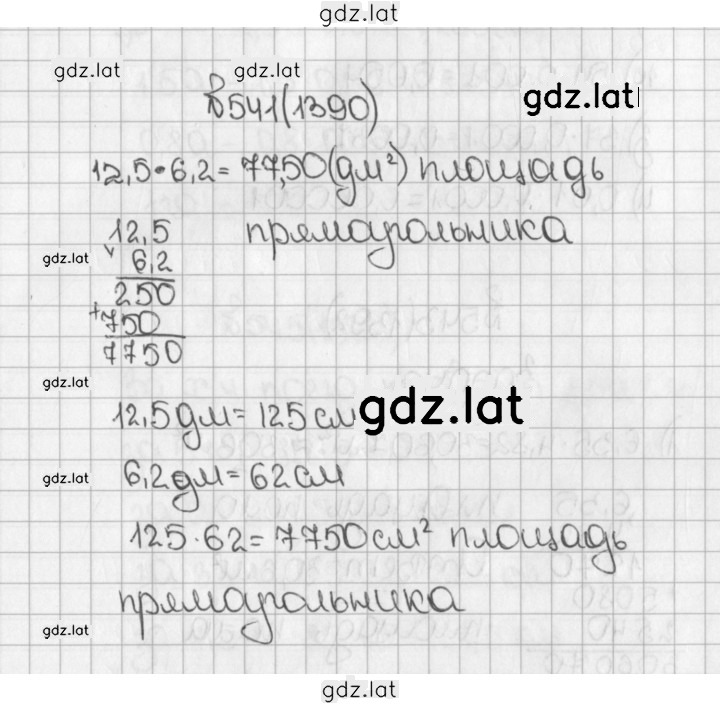 gdz.lat
gdz.lat gdz.lat
№541(1390) gdz.lat
12,5·6,2=77,50(дм²) площадь
12,5 прямоугольника
gdz.lat × 6,2
250
+750
7750
gdz.lat
12,5дм=125см gdz.lat
6,2дм=62см
gdz.lat
125·62=7750см² площадь
прямоугольника
gdz.lat
gdz.lat